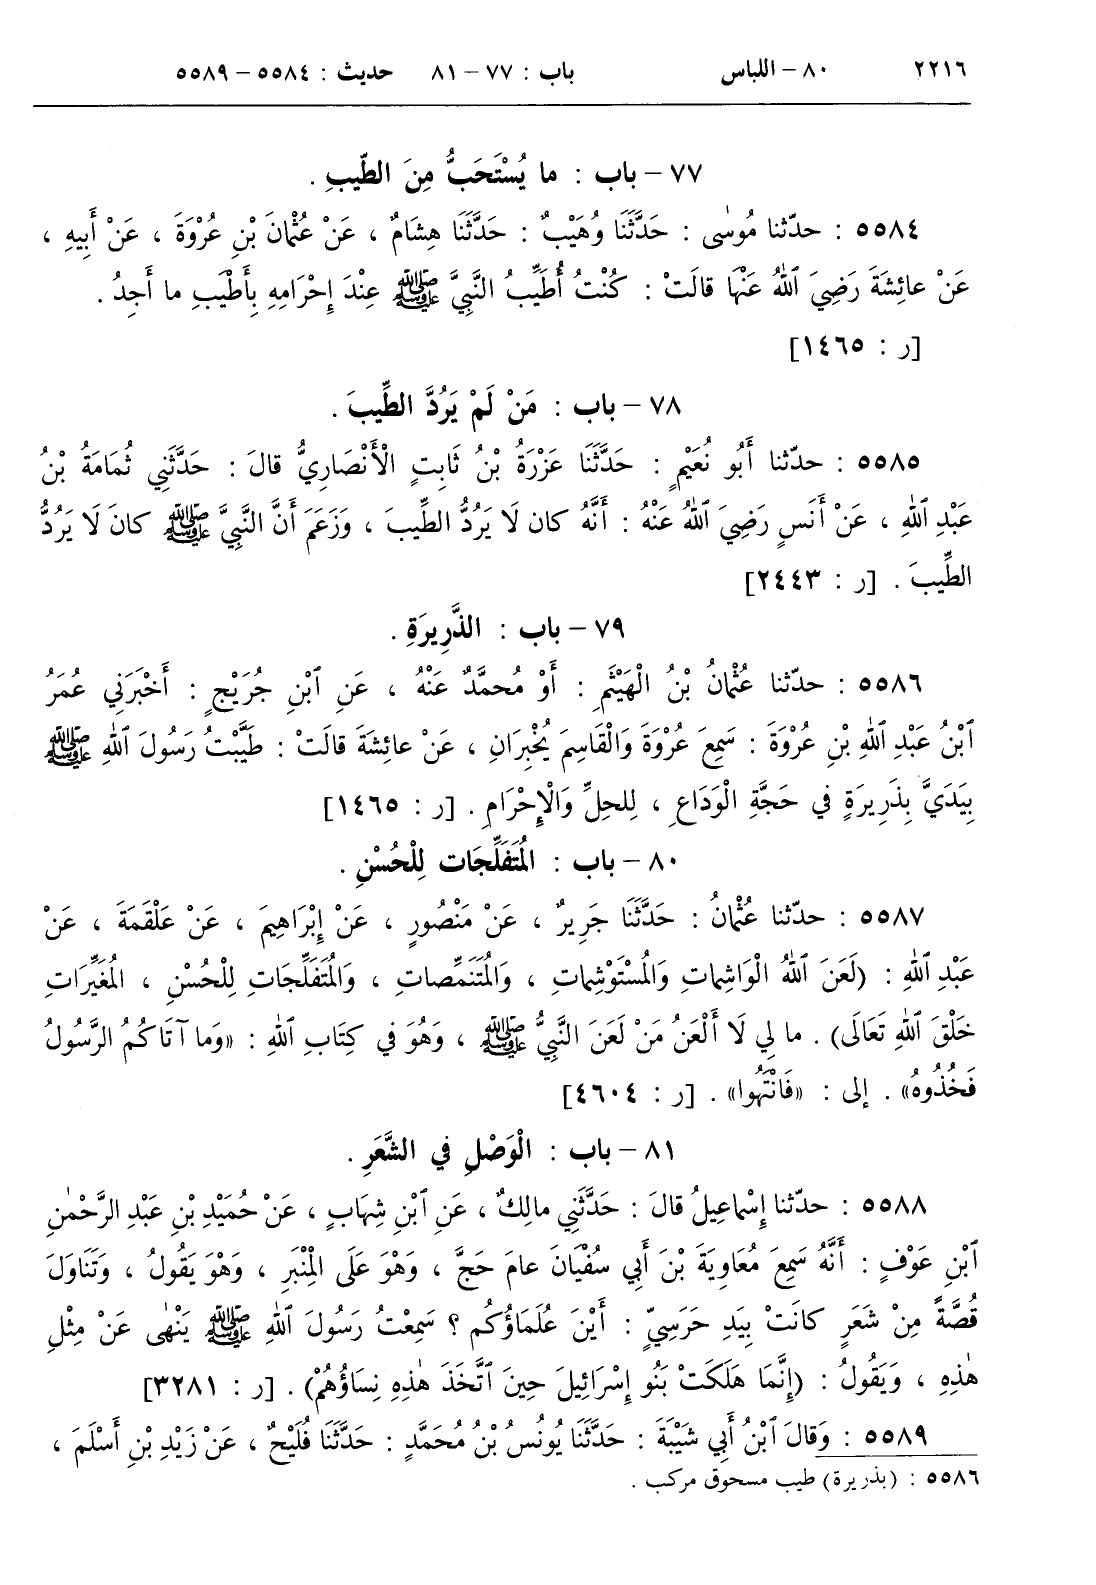 ٢٢١٦ ٨٠ – اللباس باب : ٧٧ – ٨١ حديث : ٥٥٨٤ – ٥٥٨٩
٧٧ – باب : ما يُسْتَحَبُّ مِنَ الطِّيبِ .
٥٥٨٤ : حدّثنا مُوسٰى : حَدَّثَنَا وُهَيْبٌ : حَدَّثَنَا هِشَامٌ ، عَنْ عُثْمَانَ بْنِ عُرْوَةَ ، عَنْ أَبِيهِ ،
عَنْ عائِشَةَ رَضِيَ ٱللهُ عَنْهَا قالَتْ : كُنْتُ أُطَيِّبُ النَّبِيَّ ﷺ عِنْدَ إِحْرَامِهِ بِأَطْيَبِ ما أَجِدُ .
[ر : ١٤٦٥]
٧٨ – باب : مَنْ لَمْ يَرُدَّ الطِّيبَ .
٥٥٨٥ : حدّثنا أَبُو نُعَيْمٍ : حَدَّثَنَا عَزْرَةُ بْنُ ثَابِتٍ الْأَنْصَارِيُّ قالَ : حَدَّثَنِي ثُمَامَةُ بْنُ
عَبْدِ ٱللهِ ، عَنْ أَنَسٍ رَضِيَ ٱللهُ عَنْهُ : أَنَّهُ كان لَا يَرُدُّ الطِّيبَ ، وَزَعَمَ أَنَّ النَّبِيَّ ﷺ كانَ لَا يَرُدُّ
الطِّيبَ . [ر : ٢٤٤٣]
٧٩ – باب : الذَّرِيرَةِ .
٥٥٨٦ : حدّثنا عُثْمانُ بْنُ الْهَيْثَمِ : أَوْ مُحمَّدٌ عَنْهُ ، عَنِ ٱبْنِ جُرَيْجٍ : أَخْبَرَنِي عُمَرُ
ٱبْنُ عَبْدِ ٱللهِ بْنِ عُرْوَةَ : سَمِعَ عُرْوَةَ وَالْقَاسِمَ يُخْبِرَانِ ، عَنْ عائِشَةَ قالَتْ : طَيَّبْتُ رَسُولَ ٱللهِ ﷺ
بِيَدَيَّ بِذَرِيرَةٍ في حَجَّةِ الْوَدَاعِ ، لِلحِلِّ وَالْإِحْرَامِ . [ر : ١٤٦٥]
٨٠ – باب : الْمُتَفَلِّجَات لِلْحُسْنِ .
٥٥٨٧ : حدّثنا عُثْمانُ : حَدَّثَنَا جَرِيرٌ ، عَنْ مَنْصُورٍ ، عَنْ إِبْرَاهِيمَ ، عَنْ عَلْقَمَةَ ، عَنْ
عَبْدِ ٱللهِ : (لَعَنَ ٱللهُ الْوَاشِمَاتِ وَالْمُسْتَوْشِمَاتِ ، وَالْمُتَنَمِّصاتِ ، وَالْمُتَفَلِّجَاتِ لِلْحُسْنِ ، الْمُغَيِّرَاتِ
خَلْقَ ٱللهِ تَعَالَى) . ما لِي لَا أَلْعَنُ مَنْ لَعَنَ النَّبِيُّ ﷺ ، وَهُوَ في كِتَابِ ٱللهِ : «وَما آتَاكُمُ الرَّسُولُ
فَخُذُوهُ» . إلى : «فَانْتَهُوا» . [ر : ٤٦٠٤]
٨١ – باب : الْوَصْلِ في الشَّعَرِ .
٥٥٨٨ : حدّثنا إِسْماعِيلُ قالَ : حَدَّثَنِي مالِكٌ ، عَنِ ٱبْنِ شِهَابٍ ، عَنْ حُمَيْدِ بْنِ عَبْدِ الرَّحْمٰنِ
ٱبْنِ عَوْفٍ : أَنَّهُ سَمِعَ مُعَاوِيَةَ بْنَ أَبِي سُفْيَانَ عامَ حَجَّ ، وَهْوَ عَلَى الْمِنْبَرِ ، وَهْوَ يَقُولُ ، وَتَنَاوَلَ
قُصَّةً مِنْ شَعَرٍ كانَتْ بِيَدِ حَرَسِيٍّ : أَيْنَ عُلَمَاؤُكُم ؟ سَمِعْتُ رَسُولَ ٱللهِ ﷺ يَنْهٰى عَنْ مِثْلِ
هٰذِهِ ، وَيَقُولُ : (إِنَّمَا هَلَكَتْ بَنُو إِسْرَائِيلَ حِينَ ٱتَّخَذَ هٰذِهِ نِسَاؤُهُمْ) . [ر : ٣٢٨١]
٥٥٨٩ : وَقالَ ٱبْنُ أَبِي شَيْبَةَ : حَدَّثَنَا يُونُسُ بْنُ مُحَمَّدٍ : حَدَّثَنَا فُلَيْحٌ ، عَنْ زَيْدِ بْنِ أَسْلَمَ ،
٥٥٨٦ : (بذريرة) طيب مسحوق مركب .